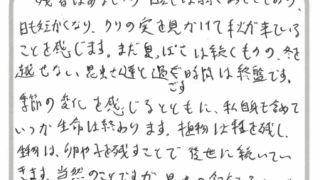 残暑はあるもの
日も短かくなり、クリの実を見かけて秋が来ている
ことを感じます。まだ夏ばては続くものの、冬を
越せない昆虫達と過ごす時間は終盤です。
季節の変化を感じるとともに、私自身も含めて
いつか生命は終わります。植物は種を残し、
動物は、卵や子を残すことで後世に続いてい
きます。当然のことですが、